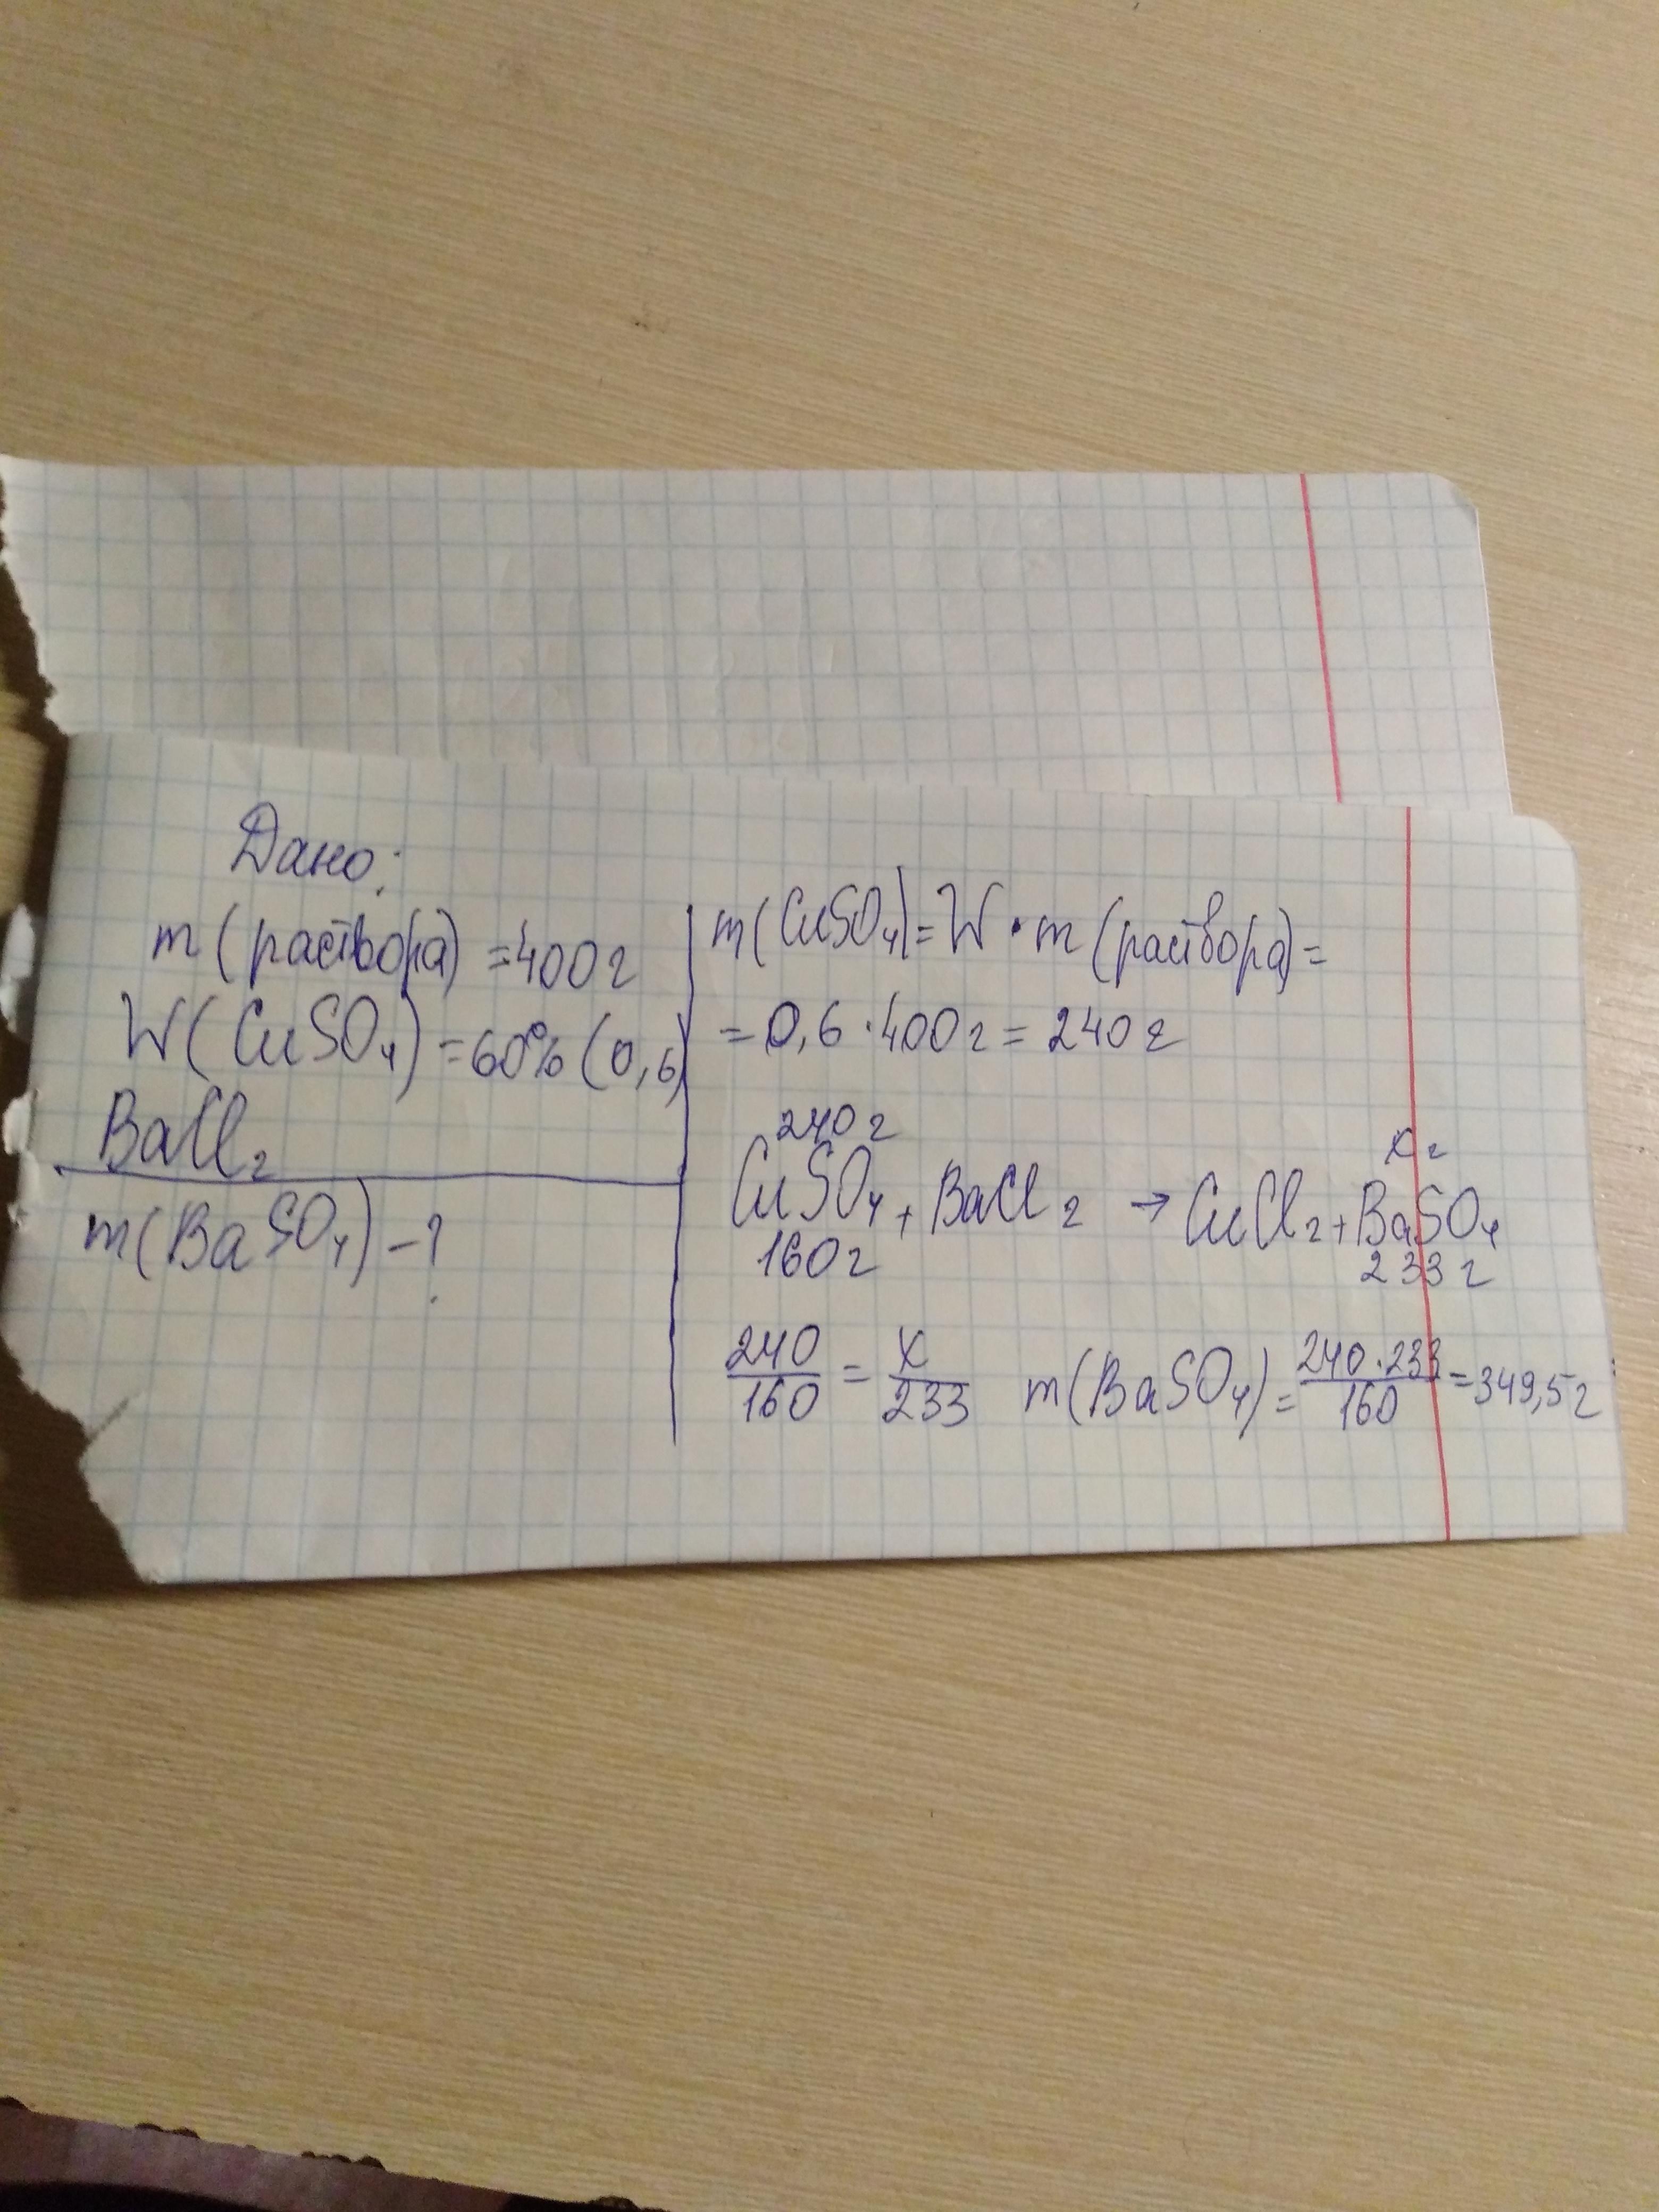 Дано:
m (раствора) = 400г
W(CuSO₄) = 60% (0,6)
BaCl₂
m(BaSO₄) – ?
m(CuSO₄) = W · m (раствора) =
= 0,6 · 400г = 240г
240г xг
CuSO₄ + BaCl₂ → CuCl₂ + BaSO₄
160г 233г
240/160 = x/233 m(BaSO₄) = 240·233/160 = 349,5г